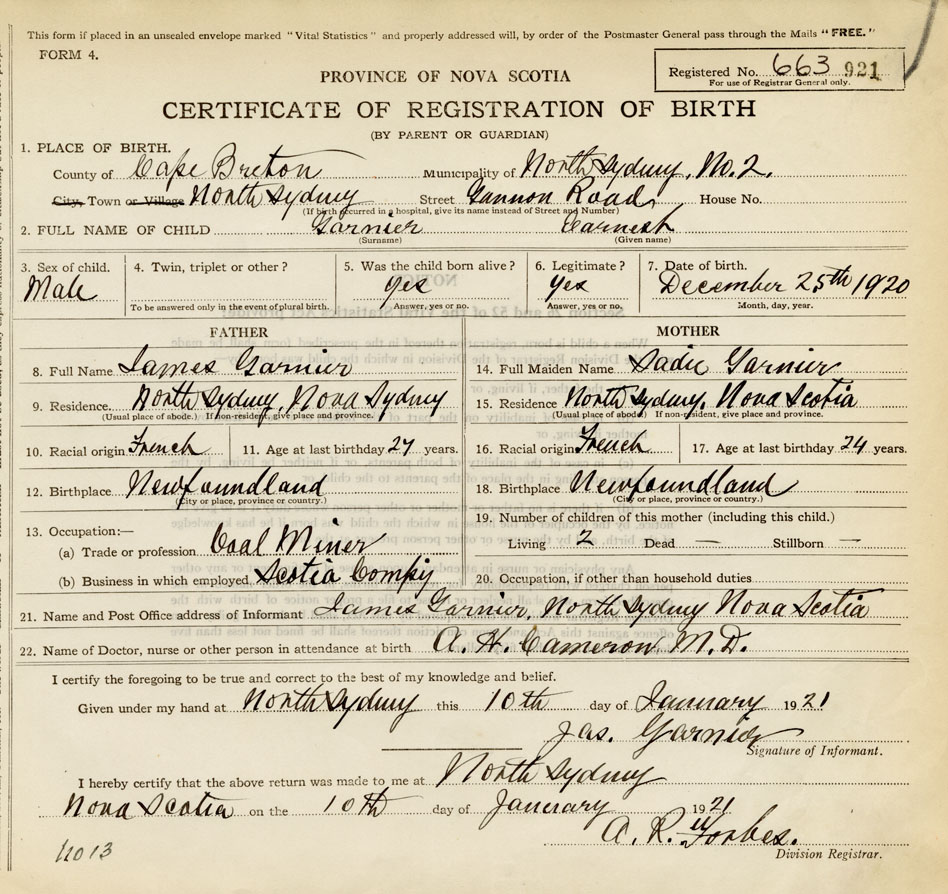 This form if placed in an unsealed envelope marked "Vital Statistics" and properly addressed will, by order of the Postmaster General pass through the Mails "FREE."
FORM 4.
Registered No. 663 921
For use of Registrar General only.
PROVINCE OF NOVA SCOTIA
CERTIFICATE OF REGISTRATION OF BIRTH
(BY PARENT OR GUARDIAN)
1. PLACE OF BIRTH.
County of Cape Breton Municipality of North Sydney, No. 2.
City, Town or Village North Sydney Street Gannon Road, House No.
(If birth occurred in a hospital, give its name instead of Street and Number)
2. FULL NAME OF CHILD Garnier Earnest
(Surname) (Given name)
3. Sex of child. 4. Twin, triplet or other? 5. Was the child born alive? 6. Legitimate? 7. Date of birth.
Male yes yes December 25th 1920
To be answered only in the event of plural birth. Answer, yes or no. Answer, yes or no. Month, day, year.
FATHER MOTHER
8. Full Name James Garnier 14. Full Maiden Name Sadie Garnier
9. Residence. North Sydney, Nova Sydney 15. Residence North Sydney, Nova Scotia
(Usual place of abode.) If non-resident, give place and province. (Usual place of abode) If non-resident, give place and province.
10. Racial origin French 11. Age at last birthday 27 years. 16. Racial origin French 17. Age at last birthday 24 years.
12. Birthplace Newfoundland 18. Birthplace Newfoundland
(City or place, province or country.) (City or place, province or country.)
13. Occupation:— 19. Number of children of this mother (including this child.)
(a) Trade or profession Coal Miner Living 2 Dead — Stillborn —
(b) Business in which employed Scotia Compy 20. Occupation, if other than household duties
21. Name and Post Office address of Informant James Garnier, North Sydney Nova Scotia
22. Name of Doctor, nurse or other person in attendance at birth A. H. Cameron M.D.
I certify the foregoing to be true and correct to the best of my knowledge and belief.
Given under my hand at North Sydney this 10th day of January 1921
Jas. Garnier
Signature of Informant.
I hereby certify that the above return was made to me at North Sydney
Nova Scotia on the 10th day of January 1921
A. R. Forbes.
Division Registrar.